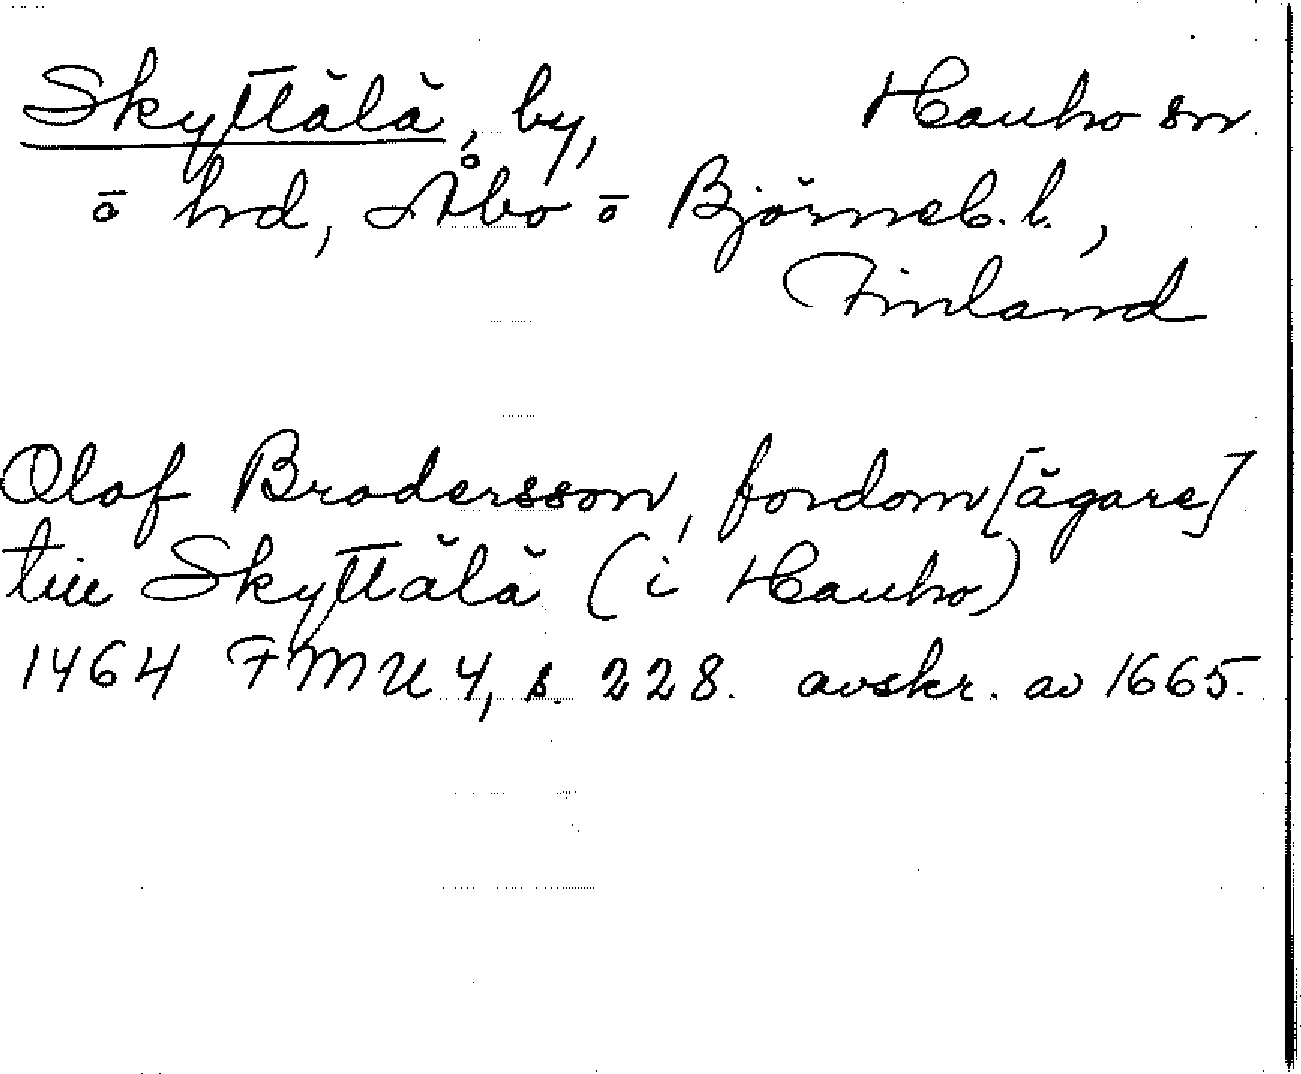 Skyttälä, by, Hauho sn
o hrd, Åbo o Björneb. l.,
Finland
Olof Brodersson, fordom [ägare]
till Skyttälä (i Hauho)
1464 FMU 4, s. 228. avskr. av 1665.